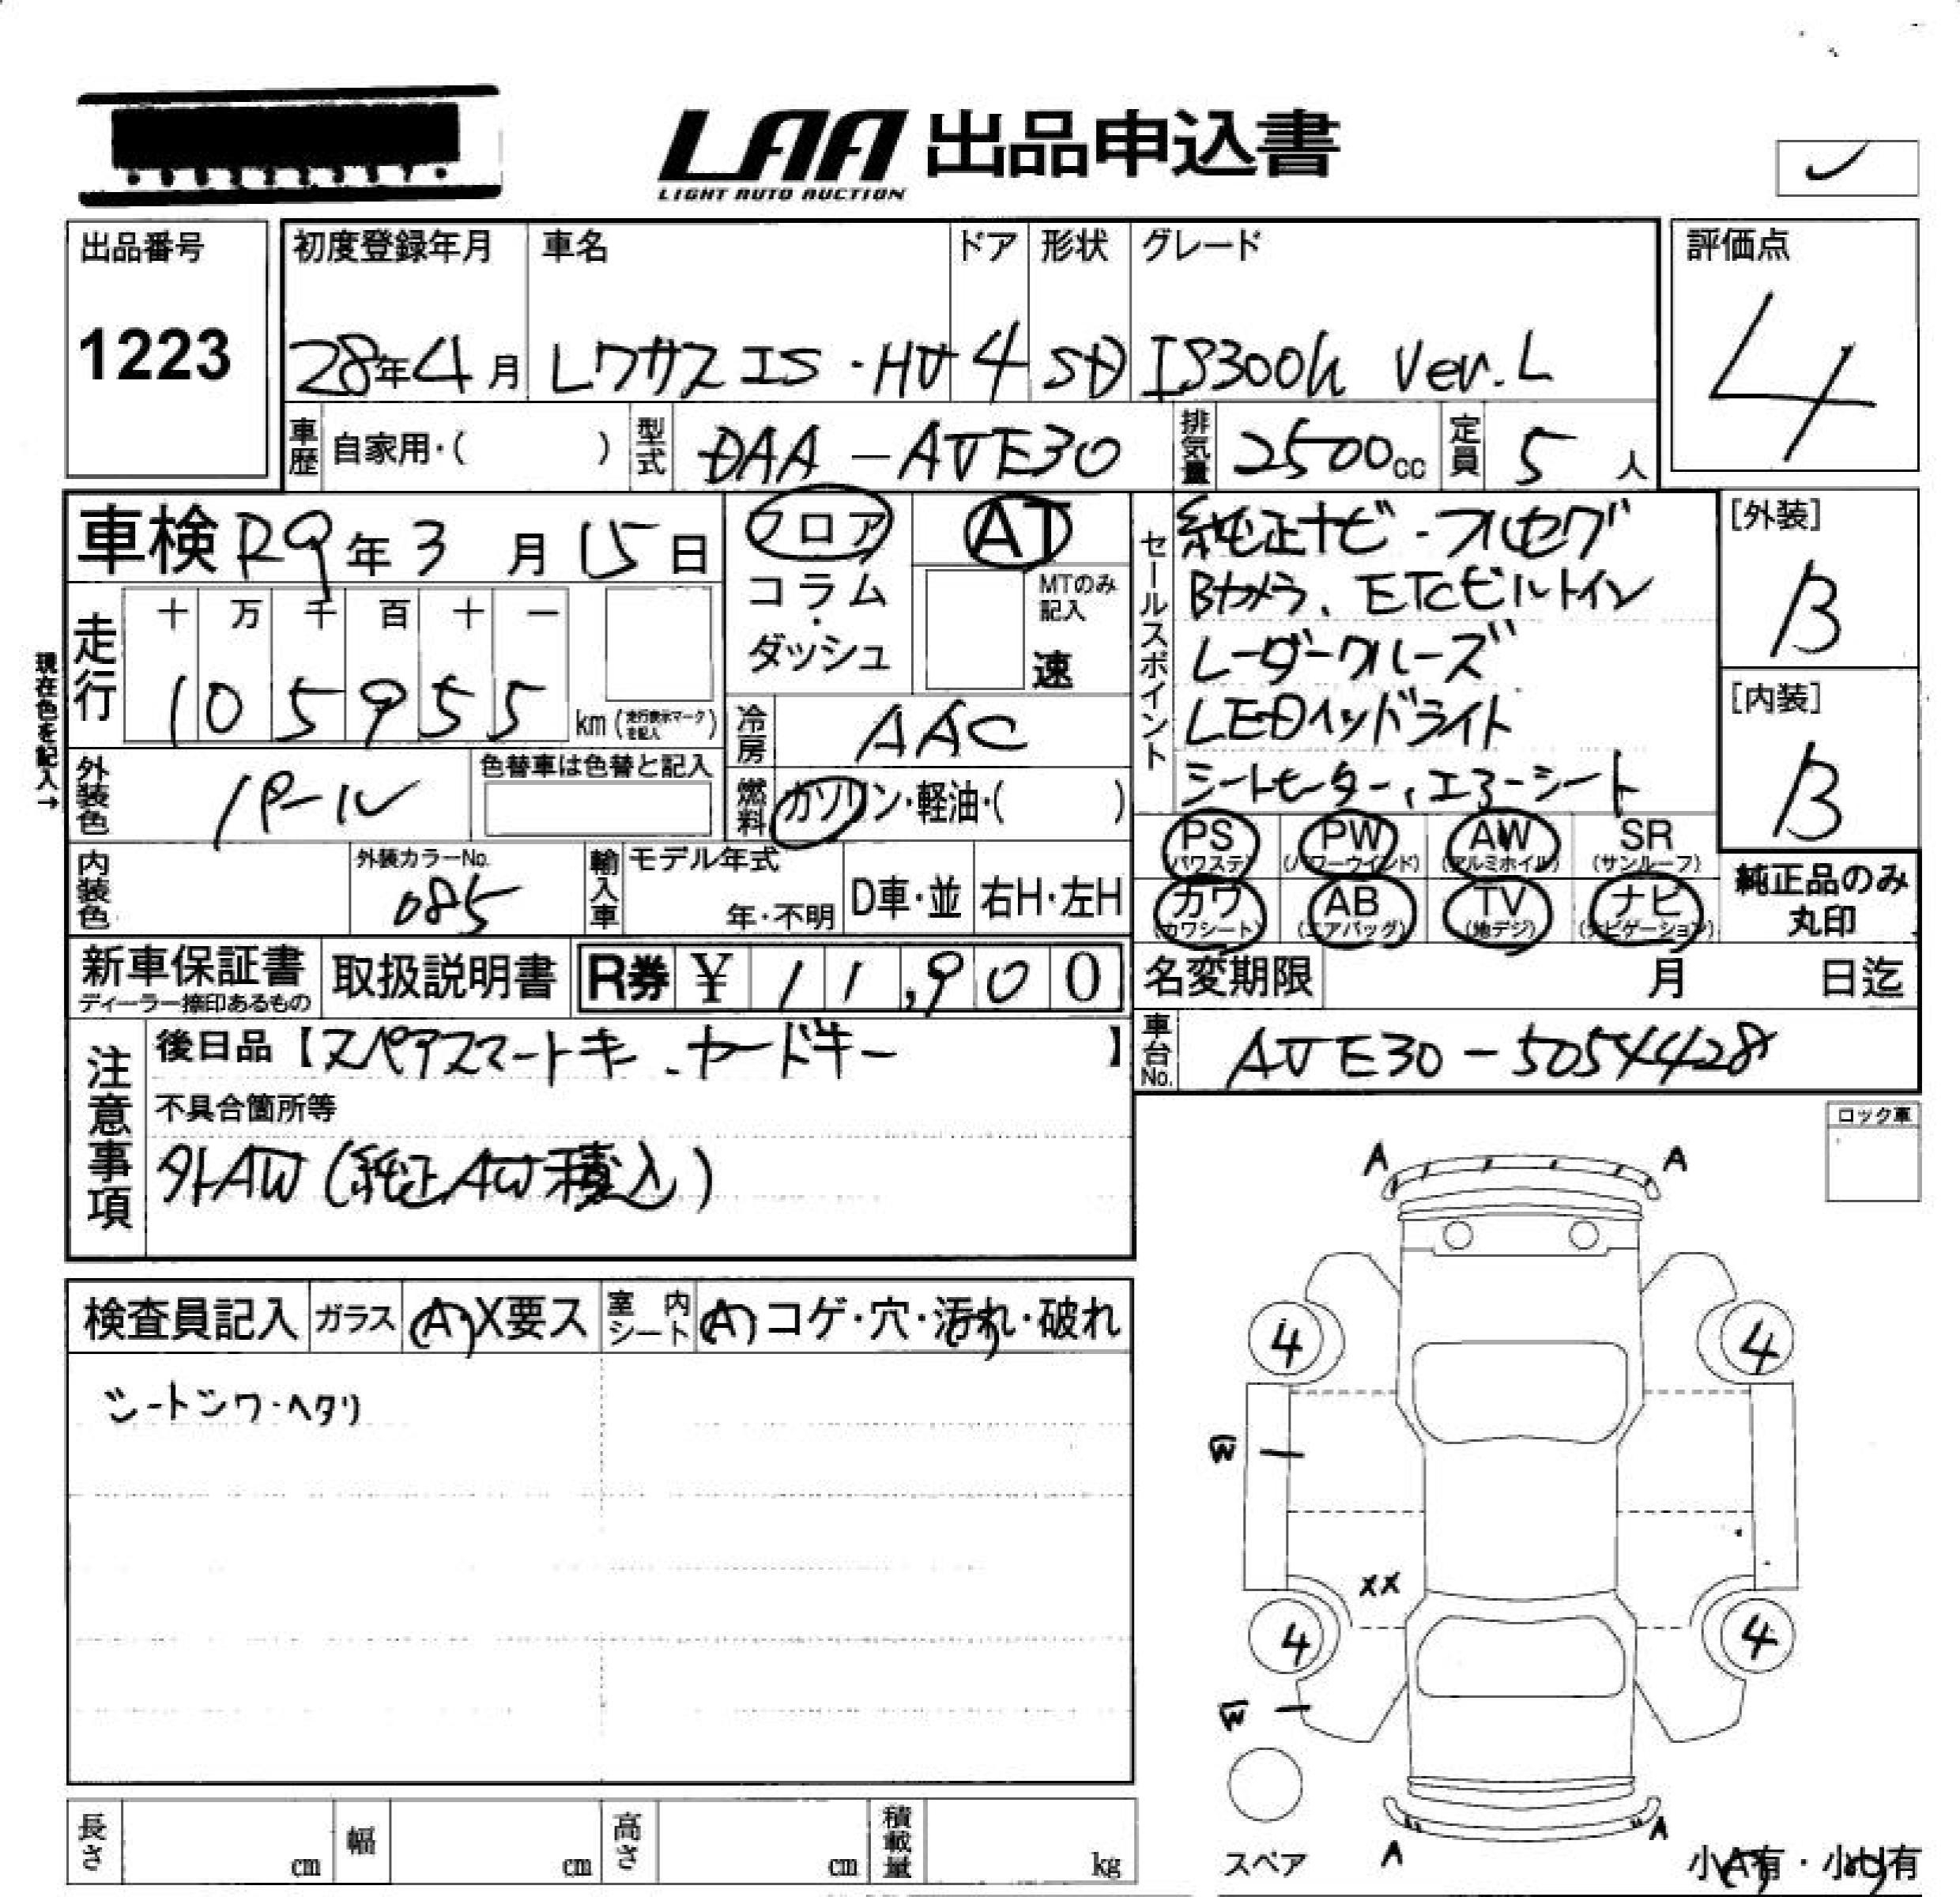 LAA 出品申込書
LIGHT AUTO AUCTION
出品番号
1223
初度登録年月 車名 ドア 形状 グレード
28年4月 レクサス IS・HV 4 SD IS300h Ver.L
評価点
4
車歴 自家用・( ) 型式 DAA-AVE30 排気量 2500cc 定員 5人
車検 R9年3月15日
フロア
コラム
・
ダッシュ
AT
MTのみ
記入
速
走行 十 万 千 百 十 一
105955 km (走行表示マークを記入)
現在色を記入→
冷房 AAC
外装色 パール
色替車は色替と記入
燃料 ガソリン・軽油・( )
内装色
外装カラーNo.
085
輸入車 モデル年式
年・不明
D車・並 右H・左H
セールスポイント
純正ナビ・フルセグ
Bカメラ、ETCビルトイン
レーダークルーズ
LEDヘッドライト
シートヒーター、エアーシート
[外装]
B
[内装]
B
PS PW AW SR
(パワステ) (パワーウインド) (アルミホイル) (サンルーフ)
カワ AB TV ナビ
(カワシート) (エアバッグ) (地デジ) (ナビゲーション)
純正品のみ
丸印
新車保証書
ディーラー捺印あるもの
取扱説明書
R券 ¥ 11,900
名変期限 月 日迄
車台No. AVE30-5054428
注意事項
後日品【スペアスマートキー、カードキー】
不具合箇所等
外AW(純正AW積込)
ロック車
検査員記入 ガラス A・X要ス 室内シート A コゲ・穴・汚れ・破れ
シートシワ・ヘタリ
A A
4 4
W
XX
4 4
W
A A
スペア
小A有・小U有
長さ cm 幅 cm 高さ cm 積載量 kg